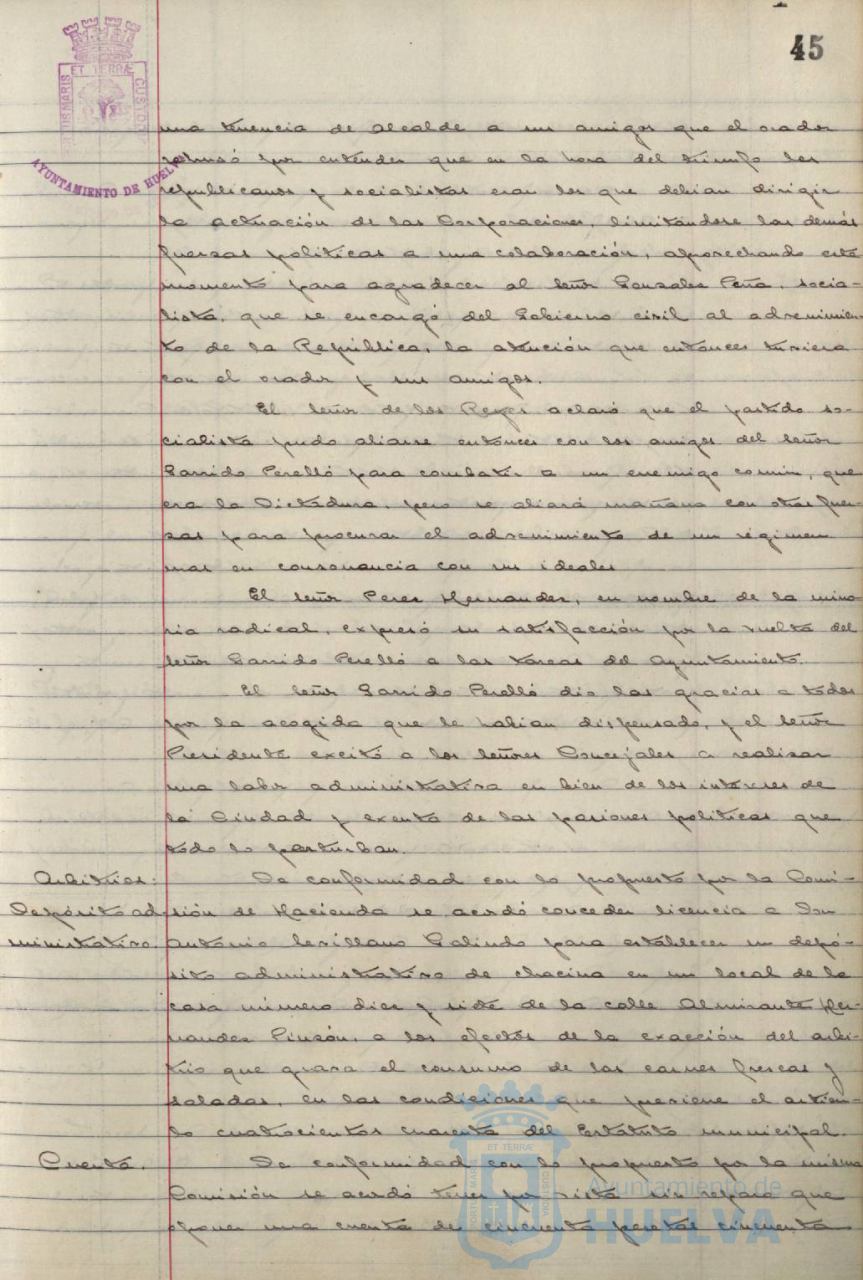 45
ET TERRÆ
AYUNTAMIENTO DE HUELVA
una tenencia de alcalde a sus amigos que el orador
rehusó por entender que en la hora del triunfo los
republicanos y socialistas eran los que debian dirigir
la actuación de las Corporaciones, limitándose las demás
fuerzas politicas a una colaboración, aprovechando este
momento para agradecer al Señor Gonzalez Peña, socia-
lista, que se encargó del Gobierno civil al advenimien-
to de la República, la atención que entonces tuviera
con el orador y sus amigos.
El Señor de los Reyes aclaró que el partido so-
cialista pudo aliarse entonces con los amigos del Señor
Garrido Perelló para combatir a un enemigo comun, que
era la Dictadura, pero se aliará mañana con otras fuer-
zas para procurar el advenimiento de un régimen
mas en consonancia con sus ideales
El Señor Perez Hernandez, en nombre de la mino-
ria radical, expresó su satisfacción por la vuelta del
Señor Garrido Perelló a las tareas del Ayuntamiento.
El Señor Garrido Perelló dio las gracias a todos
por la acogida que le habian dispensado, y el Señor
Presidente excitó a los Señores Concejales a realizar
una labor administrativa en bien de los intereses de
la Ciudad y exenta de las pasiones politicas que
todo lo perturban.
Arbitrios: De conformidad con lo propuesto por la Comi-
Depósito ad- sión de Hacienda se acordó conceder licencia a Don
ministrativo. Antonio Sevillano Galindo para establecer un depó-
sito administrativo de chacina en un local de la
casa número diez y siete de la calle Almirante Her-
nandez Pinzón, a los efectos de la exacción del arbi-
trio que grava el consumo de las carnes frescas y
saladas, en las condiciones que previene el articu-
lo cuatrocientos cuarenta del Estatuto municipal.
Cuenta. De conformidad con lo propuesto por la misma
Comisión se acordó tener por vista sin reparo que
oponer una cuenta de cincuenta pesetas cincuenta
Ayuntamiento de
HUELVA